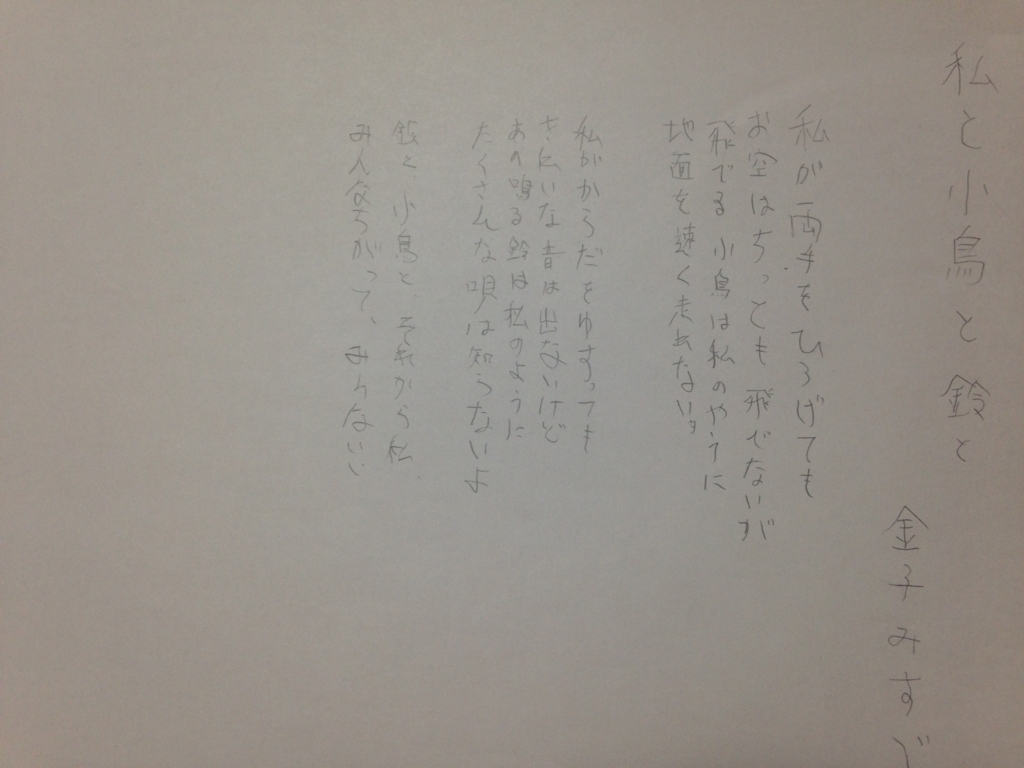 私と小鳥と鈴と
金子みすゞ
私が両手をひろげても
お空はちっとも飛でないが
飛でる小鳥は私のやうに
地面を速く走れない。
私がからだをゆすっても
きれいな音は出ないけど
あの鳴る鈴は私のように
たくさんな唄は知らないよ
鈴と、小鳥と、それから私、
みんなちがって、みんないい